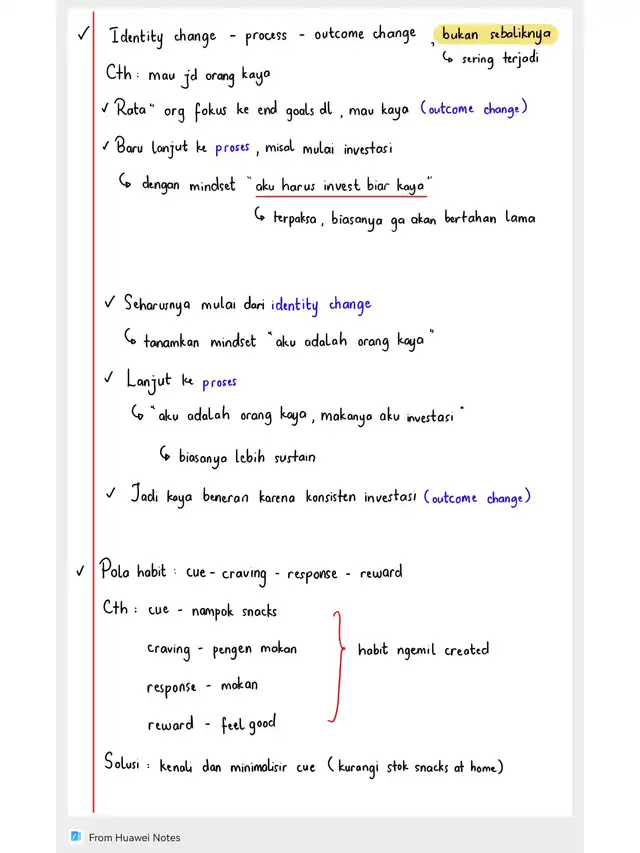 ✓ Identity change - process - outcome change, bukan sebaliknya
↳ sering terjadi
Cth : mau jd orang kaya
✓ Rata" org fokus ke end goals dl, mau kaya (outcome change)
✓ Baru lanjut ke proses, misal mulai investasi
↳ dengan mindset "aku harus invest biar kaya"
↳ terpaksa, biasanya ga akan bertahan lama
✓ Seharusnya mulai dari identity change
↳ tanamkan mindset "aku adalah orang kaya"
✓ Lanjut ke proses
↳ "aku adalah orang kaya, makanya aku investasi"
↳ biasanya lebih sustain
✓ Jadi kaya beneran karena konsisten investasi (outcome change)
✓ Pola habit : cue - craving - response - reward
Cth : cue - nampok snacks
craving - pengen makan
habit ngemil created
response - makan
reward - feel good
Solusi : kenali dan minimalisir cue (kurangi stok snacks at home)
From Huawei Notes